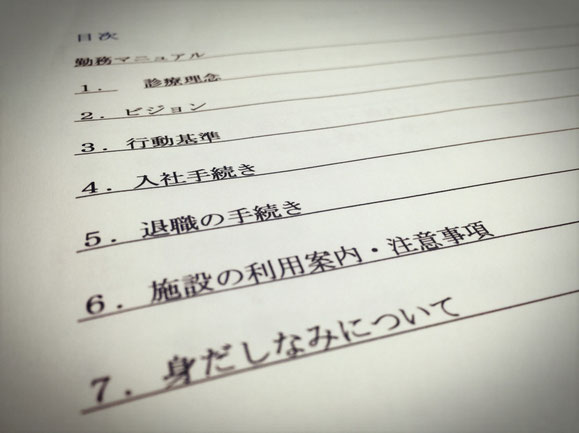 目次
勤務マニュアル
1． 診療理念
2．ビジョン
3．行動基準
4．入社手続き
5．退職の手続き
6．施設の利用案内・注意事項
7．身だしなみについて